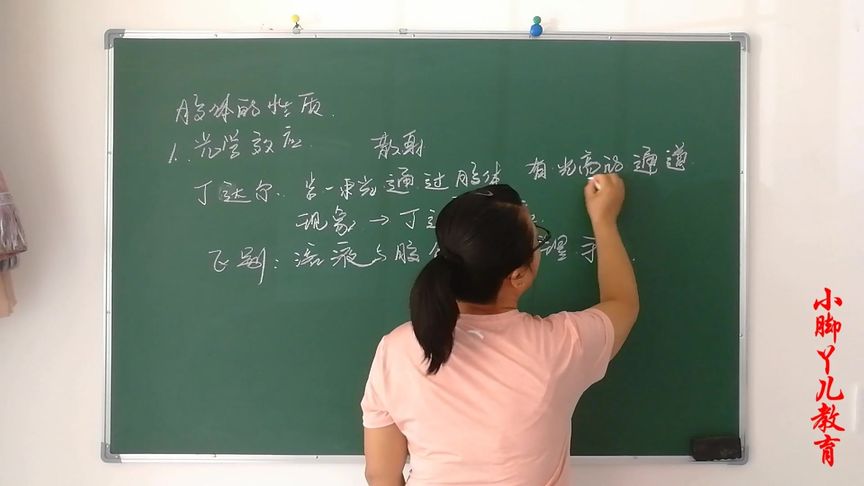 胶体的性质.
1. 光学效应. 散射
丁达尔. 当一束光通过胶体 有光亮的通道
现象 → 丁达
区别: 溶液与胶体 理 手
小脚丫儿教育